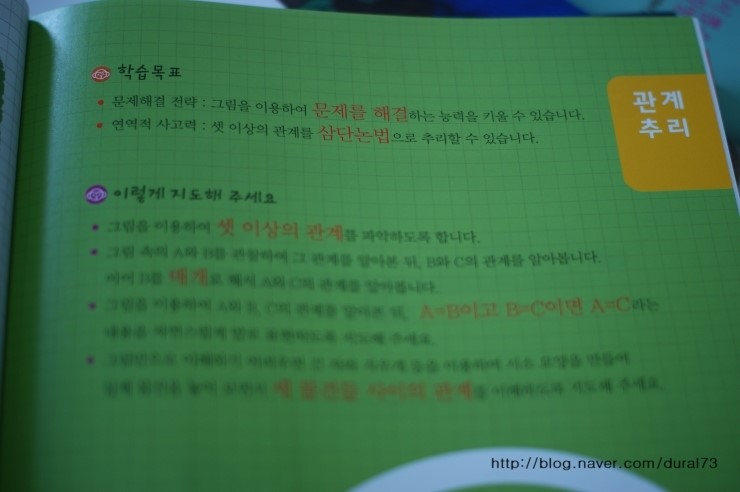 학습목표
• 문제해결 전략 : 그림을 이용하여 문제를 해결하는 능력을 키울 수 있습니다.
• 연역적 사고력 : 셋 이상의 관계를 삼단논법으로 추리할 수 있습니다.
관계
추리
이렇게 지도해 주세요
• 그림을 이용하여 셋 이상의 관계를 파악하도록 합니다.
• 그림 속의 A와 B를 관찰하여 그 관계를 알아본 뒤, B와 C의 관계를 알아봅니다.
B를 매개로 해서 A와 C의 관계를 알아봅니다.
• 그림을 이용하여 A와 B, C의 관계를 알아본 뒤, A=B이고 B=C이면 A=C라는
내용을 자연스럽게 말로 표현하도록 지도해 주세요.
• 그림만으로 이해하기 등을 이용하여 시소 모양을 만들어
세 물건들 사이의 관계를 이해하도록 지도해 주세요.
http://blog.naver.com/dural73